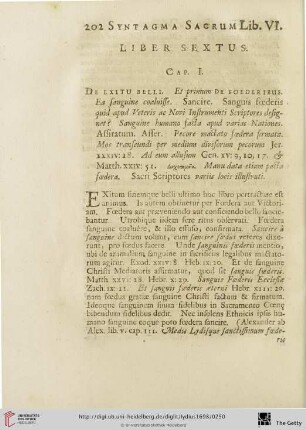 202 SYNTAGMA SACRUM Lib. VI.
LIBER SEXTUS.
CAP. I.
DE EXITU BELLI. Et primum DE FOEDERIBUS.
Ea sanguine coaluisse. Sancire. Sanguis fœderis
quid apud Veteris ac Novi Instrumenti Scriptores desig-
net? Sanguine humano facta apud varias Nationes.
Assiratum. Asser. Pecore mactato fœdera firmata.
Mos transeundi per medium divisorum pecorum Jer.
XXXIV: 18. Ad eum allusum Gen. XV: 9, 10, 17. &
Matth. XXIV: 51. Manu data etiam pacta
fœdera. Sacri Scriptores variis locis illustrati.
EXitum finemque belli ultimo hoc libro pertractare est
animus. Is autem obtinetur per Fœdera aut Victori-
am. Fœdera aut praeveniendo aut conficiendo bello sanci-
untur. Utrobique iisdem fere ritus observati. Fœdera
sanguine coaluere, & illo effuso, confirmata. Sancire à
sanguine dictum volunt, cum sancire fœdus veteres dixe-
runt, pro fœdus facere. Unde sanguinis fœderis mentio,
ubi de animalium, sanguine in sacrificiis legalibus mactato-
rum agitur. Exod. XXIV: 8. Heb. IX: 20. Et de sanguine
Christi Mediatoris affirmatur, quod sit sanguis fœderis.
Matth. XXVI: 28. Hebr. X: 29. Sanguis Fœderis Ecclesiæ
Zach. IX: 11. Et sanguis fœderis æterni Hebr. XIII: 20.
nam fœdus gratiæ sanguine Christi factum & firmatum.
Ideoque sanguinem fusum fidelibus in Sacramento Cœnæ
bibendum fidelibus dedit. Nec insolens Ethnicis ipsis hu-
mano sanguine eoque poto fœdera sancire. (Alexander ab
Alex. lib. V. cap. III. Medis Lydisque sanctissimum fœde-
ris
http://digi.ub.uni-heidelberg.de/diglit/lydius1698/0250
© Universitätsbibliothek Heidelberg